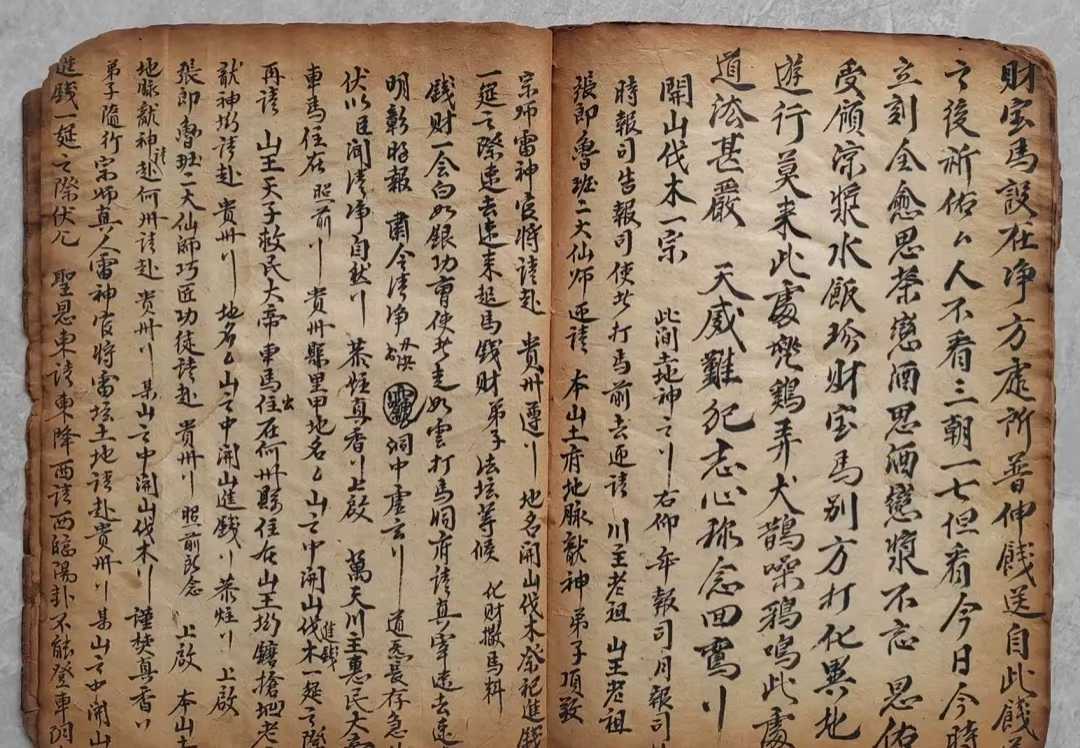 財宝馬設在净方虚所普伸餞送自此餞
之後祈佑厶人不看三朝一七但看今日今時
立刻全愈思槳戀酒思酒戀漿不忘 恩佑
受領凉漿水飯珍財宝馬别方打化異地
遊行莫来此處 鷄弄犬鵲噪鴉鳴此處
道法甚嚴 天威難犯志心称念回鸞
開山伐木一宗 此間土地神之 右仰年報司月報司
時報司告報司使者打馬前去迎請 川主老祖 山王老祖
張郎魯班二大仙師 迎請 本山土府地脉獻神弟子頂敬
宗师雷神官將請赴 貴州遵 地名開山伐木祭祀進錢
一筵之際速去速来起馬錢財 弟子法坛等候 化財撒馬料
錢財一会白如銀功曹使者走如雲打馬洞府請真宰速去速
明彰昭報 肅令清净 洞中虚玄 道炁長存急
伏以臣聞清净自然 恭炷真香 上啟 萬天川主惠民大
車馬住在 照前 貴州縣里甲地名厶山之中開山伐木進錢一筵之際
再請 山王天子救民大帝車馬住在何州縣住在山王坳 搶地老
獻神坳請赴 貴州 地名厶山之中開山進錢 恭炷 上啟
張郎魯班二大仙師巧匠功徒請赴 貴州 照前 念 上啟 本山
地脉獻神請赴何州請赴 貴州 某山之中開山伐木 謹焚真香
弟子隨行宗师真人雷神官將雷坛土地請赴貴州 某山之中開山
進錢一筵之際伏凡 聖恩東請東降西請西臨陽卦不能登車